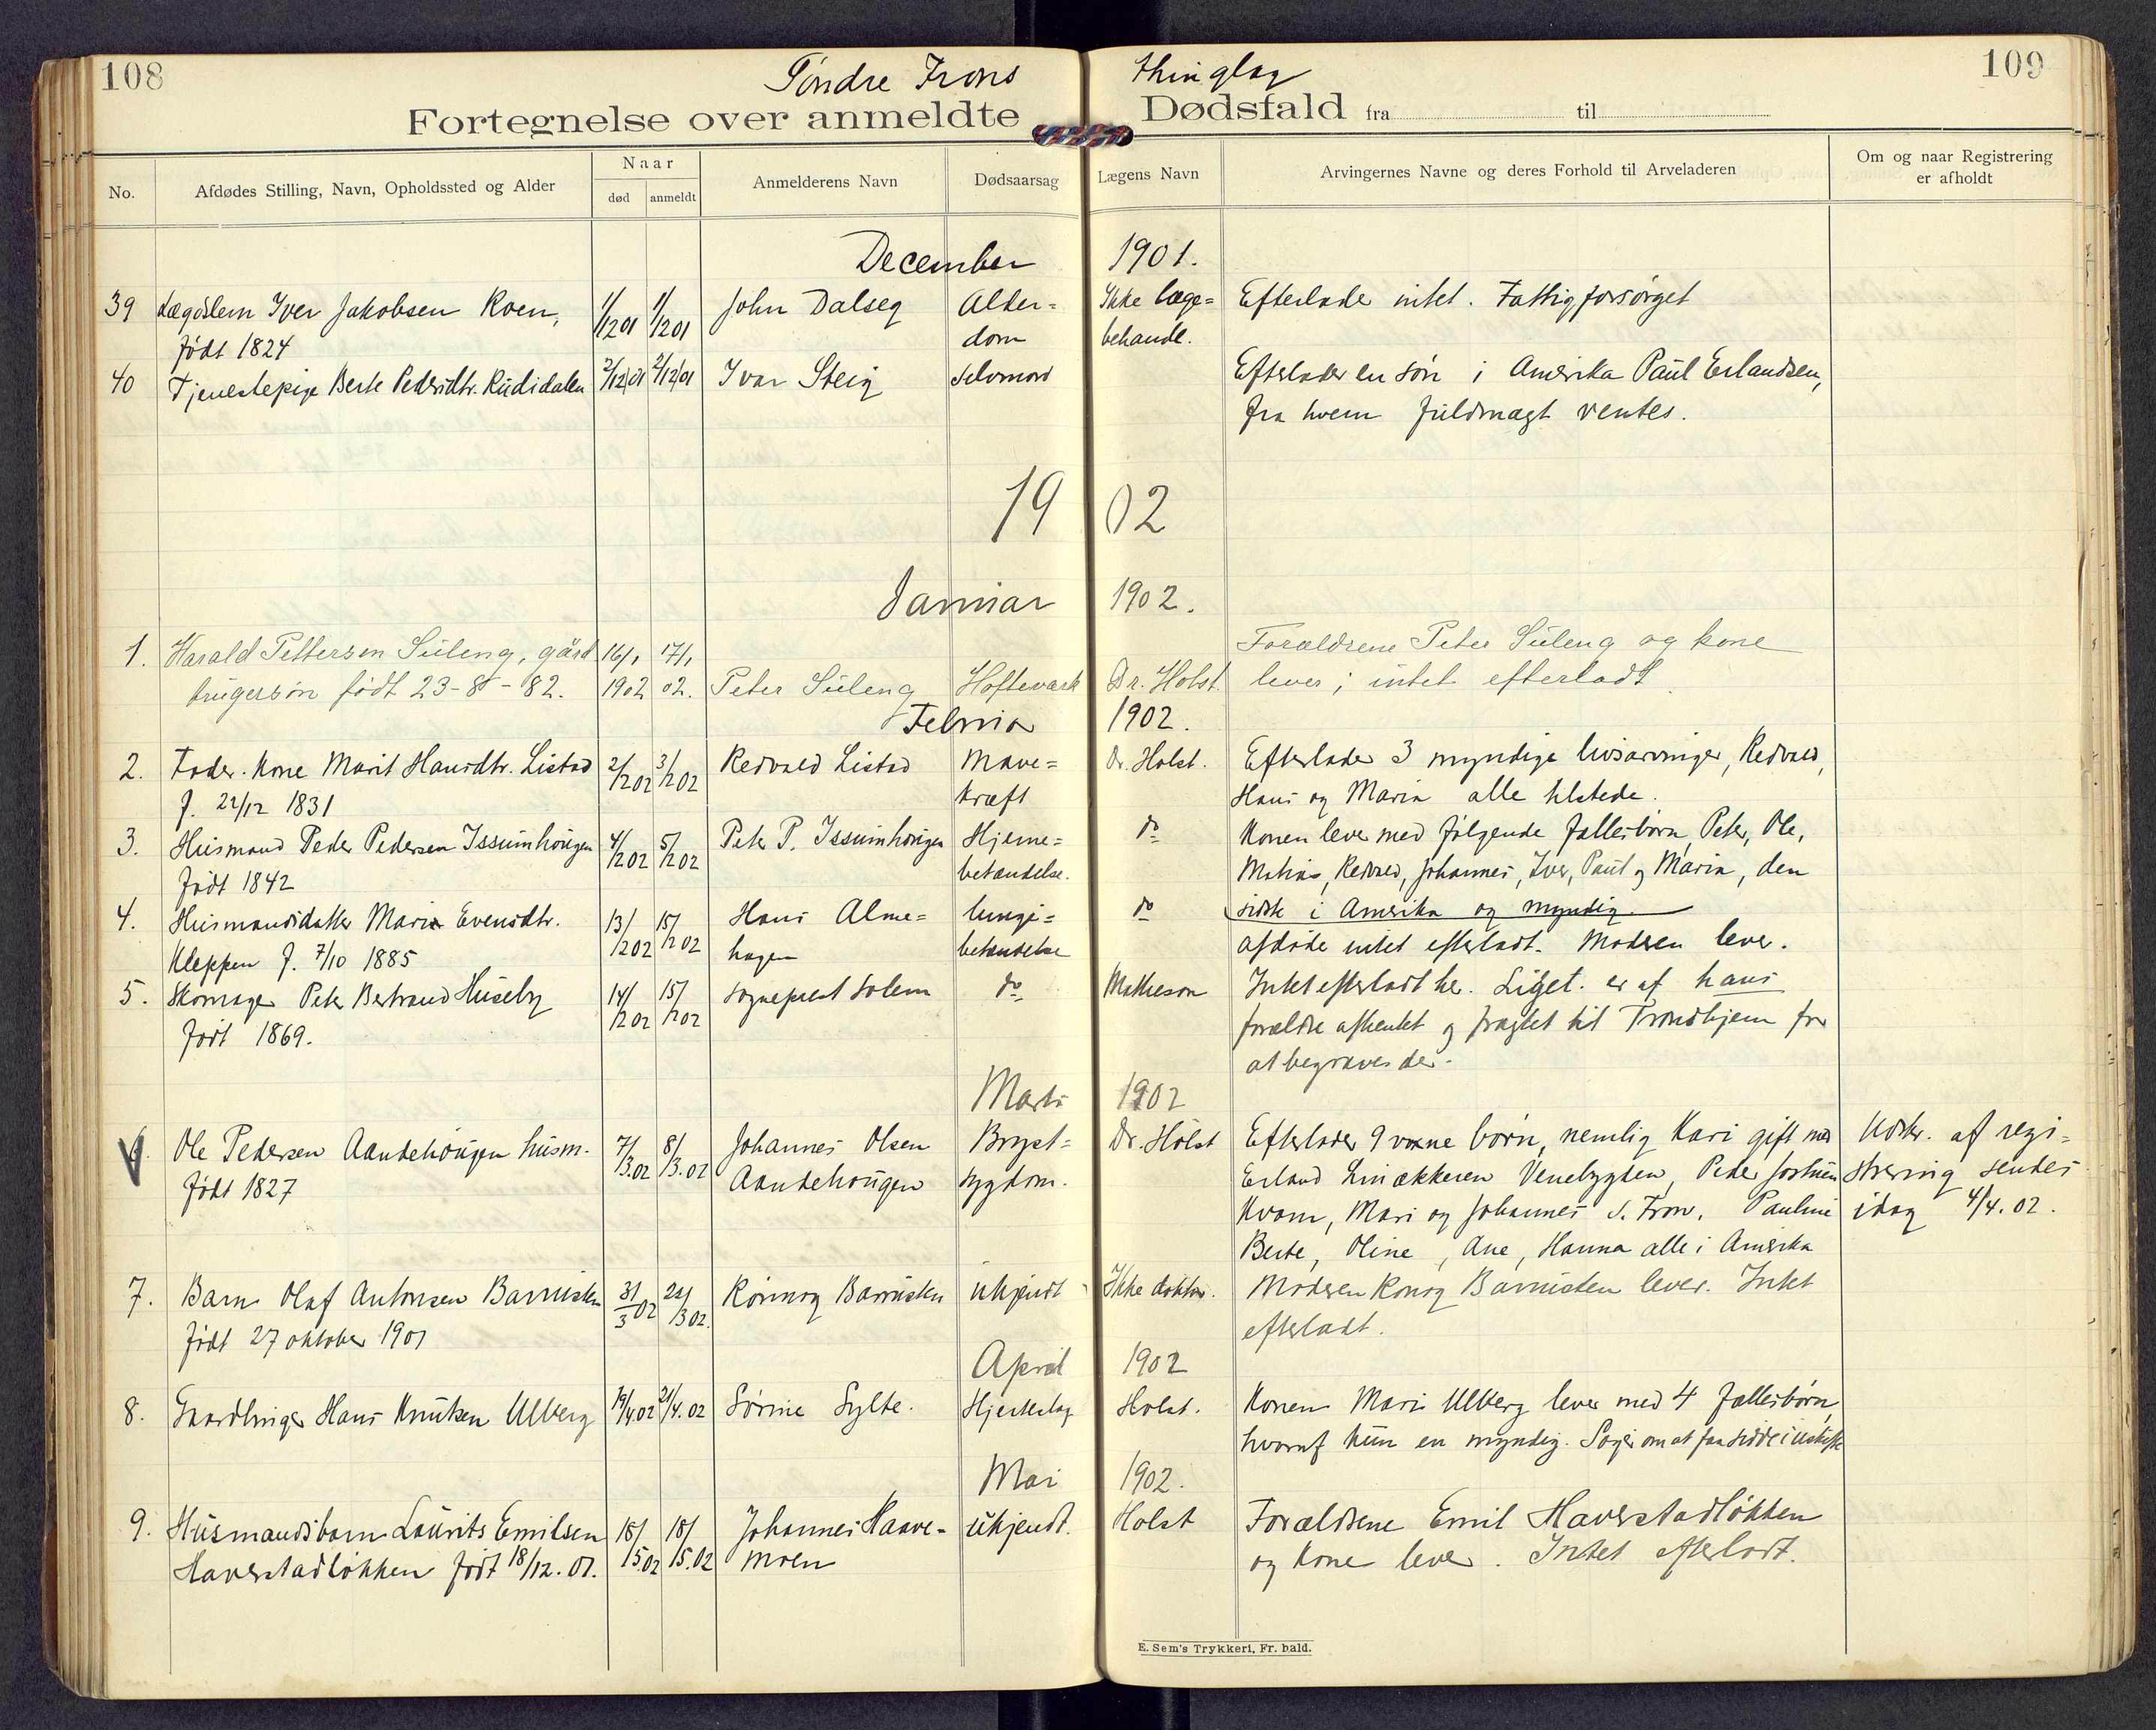 108
Søndre Frons
thinglag
109
Fortegnelse over anmeldte
Dødsfald fra til
No.
Afdødes Stilling, Navn, Opholdssted og Alder
Naar
død
anmeldt
Anmelderens Navn
Dødsaarsag
Lægens Navn
Arvingernes Navne og deres Forhold til Arveladeren
Om og naar Registrering
er afholdt
December 1901.
39 Lægdslem Iver Jakobsen Roen, 1/12 01 1/12 01 John Dalseg Alder= Ikke læge= Efterlader intet. Fattigforsørget
født 1824 dom behandl.
40 Tjenestepige Berte Pedersdtr. Rudidalen 2/12 01 2/12 01 Ivar Steig selvmord Efterlader en søn i Amerika Paul Erlandsen,
fra hvem fuldmagt ventes.
19 02
Januar 1902.
1. Harald Pettersen Suleng, gård 16/1 17/1 Forældrene Peter Suleng og kone
brugersøn født 23-8-82. 1902 02. Peter Suleng Hofteværk Dr. Holst. lever; intet efterladt.
Februar 1902.
2. Føder. Kone Marit Hansdtr. Listad 2/2 02 3/2 02 Redvald Listad Mave= Dr. Holst. Efterlader 3 myndige livsarvinger, Redvald,
f. 22/12 1831 kræft Hans og Maria alle tilstede.
3. Husmand Peder Pedersen Issumhougen 4/2 02 5/2 02 Peter P. Issumhougen Hjerne= do Konen lever med følgende fællesbørn, Peter, Ole,
født 1842 betændelse. Matias, Redvald, Johannes, Iver, Paul og Maria, den
4. Husmandsdatter Maria Evensdtr. 13/2 02 15/2 02 Hans Alme= lunge= do sidste i Amerika og myndig.
Kleppen f. 7/10 1885 hagen betændelse afdøde intet efterladt. Modren lever.
5. Skomager Peter Bertrand Huseby 14/2 02 15/2 02 sogneprest Solem do Matheson Intet efterladt her. Liget er af hans
født 1869. forældre afhentet og fragtet til Trondhjem for
at begraves der.
Marts 1902
6. Ole Pedersen Aandehougen husm. 7/3.02 8/3.02 Johannes Olsen Bryst= Dr. Holst Efterlader 9 voxne børn, nemlig Kari gift med Udskr. af regi=
født 1827 Aandehougen sygdom. Erland Linækkeren Venebygden, Peder Jostuen strering sendes
Kvam, Mari og Johannes S. Fron. Pauline idag 4/4.02.
Berte, Oline, Ane, Hanna alle i Amerika
7. Barn Olaf Antonsen Barrusten 31/3 02 24/3 02. Rønnog Barrusten ukjendt Ikke doktor. Modren Ronog Barrusten lever. Intet
født 27 oktober 1901 efterladt.
April 1902
8. Gaardbruger Hans Knutsen Ulberg 19/4.02 21/4.02 Sørine Sylte. Hjerteslag Holst. Konen Mari Ulberg lever med 4 fællesbørn,
hvoraf kun en myndig. Søger om at faa sidde i uskifte
Mai 1902.
9. Husmandsbarn Laurits Emilsen 15/5.02 18/5.02 Johannes Haave= ukjendt. Holst Forældrene Emil Haverstadløkken
Haverstadløkken født 18/12.01. moen og kone lever. Intet efterladt.
E. Sem's Trykkeri, Fr. hald.